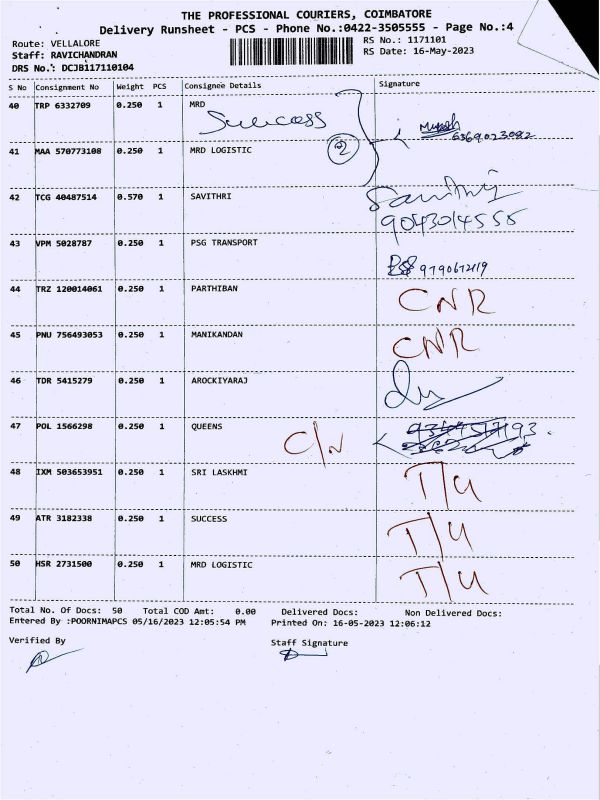 THE PROFESSIONAL COURIERS, COIMBATORE
Delivery Runsheet - PCS - Phone No.:0422-3505555 - Page No.:4
Route: VELLALORE RS No.: 1171101
Staff: RAVICHANDRAN RS Date: 16-May-2023
DRS No.: DCJB117110104
S No Consignment No Weight PCS Consignee Details Signature
40 TRP 6332709 0.250 1 MRD
Success
6369023082
41 MAA 570773108 0.250 1 MRD LOGISTIC
42 TCG 40487514 0.570 1 SAVITHRI
Savithri
9043014555
43 VPM 5028787 0.250 1 PSG TRANSPORT
9790672119
44 TRZ 120014061 0.250 1 PARTHIBAN CNR
45 PNU 756493053 0.250 1 MANIKANDAN CNR
46 TDR 5415279 0.250 1 AROCKIYARAJ
47 POL 1566298 0.250 1 QUEENS C/N
48 IXM 503653951 0.250 1 SRI LASKHMI T/U
49 ATR 3182338 0.250 1 SUCCESS T/U
50 HSR 2731500 0.250 1 MRD LOGISTIC T/U
Total No. Of Docs: 50 Total COD Amt: 0.00 Delivered Docs: Non Delivered Docs:
Entered By :POORNIMAPCS 05/16/2023 12:05:54 PM Printed On: 16-05-2023 12:06:12
Verified By Staff Signature